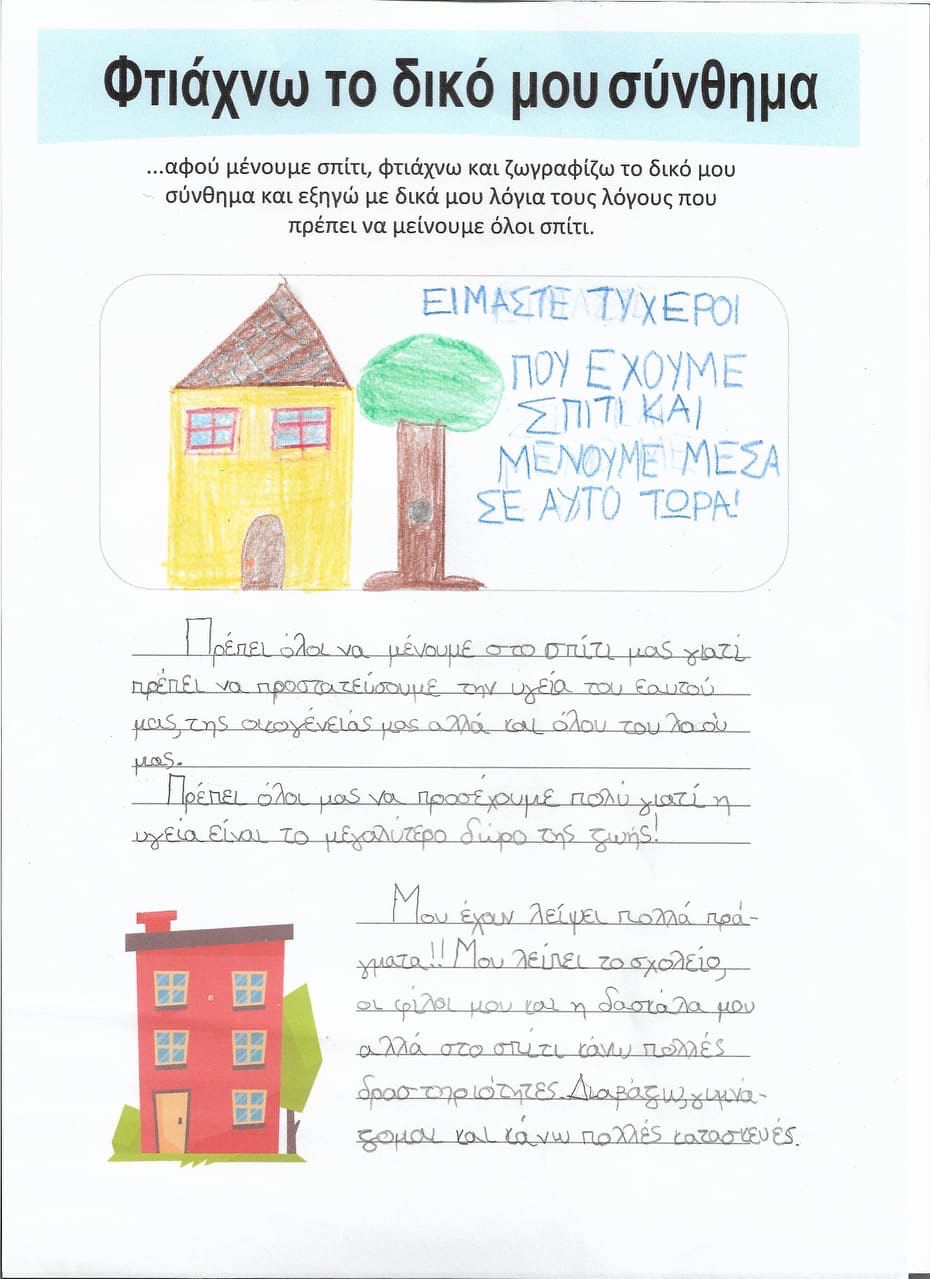 Φτιάχνω το δικό μου σύνθημα
...αφού μένουμε σπίτι, φτιάχνω και ζωγραφίζω το δικό μου
σύνθημα και εξηγώ με δικά μου λόγια τους λόγους που
πρέπει να μείνουμε όλοι σπίτι.
ΕΙΜΑΣΤΕ ΤΥΧΕΡΟΙ
ΠΟΥ ΕΧΟΥΜΕ
ΣΠΙΤΙ ΚΑΙ
ΜΕΝΟΥΜΕ ΜΕΣΑ
ΣΕ ΑΥΤΟ ΤΩΡΑ!
Πρέπει όλοι να μένουμε στο σπίτι μας γιατί
πρέπει να προστατεύσουμε την υγεία του εαυτού
μας, της οικογένειάς μας αλλά και όλου του λαού
μας.
Πρέπει όλοι μας να προσέχουμε πολύ γιατί η
υγεία είναι το μεγαλύτερο δώρο της ζωής!
Μου έχουν λείψει πολλά πρά-
γματα!! Μου λείπει το σχολείο,
οι φίλοι μου και η δασκάλα μου
αλλά στο σπίτι κάνω πολλές
δραστηριότητες. Διαβάζω, γυμνά-
ζομαι και κάνω πολλές κατασκευές.